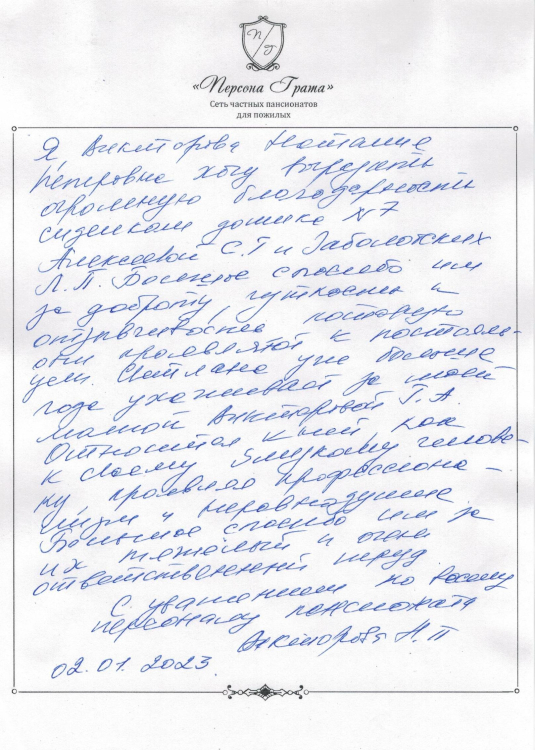 П Г
«Персона Грата»
Сеть частных пансионатов
для пожилых
Я, Викторова Наталия
Петровна хочу выразить
огромную благодарность
сиделкам домика №7
Алексеевой С.Г и Заболотских
Л.П. Большое спасибо им
за доброту, чуткость и
отзывчивость, которую
они проявляют к постояль-
цам. Светлана уже больше
года ухаживает за моей
мамой Викторовой Г.А.
Относится к ней как
к своему близкому челове-
ку, проявляя профессиона-
лизм и неравнодушие
Большое спасибо им за
их тяжёлый и очень
ответственный труд.
С уважением ко всему
персоналу пансионата
Викторова Н.П
02.01.2023